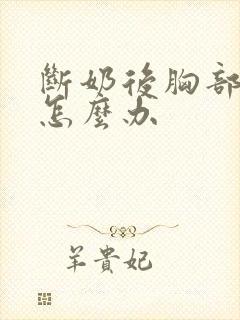 斷奶後胸部
怎麼办
羊貴妃